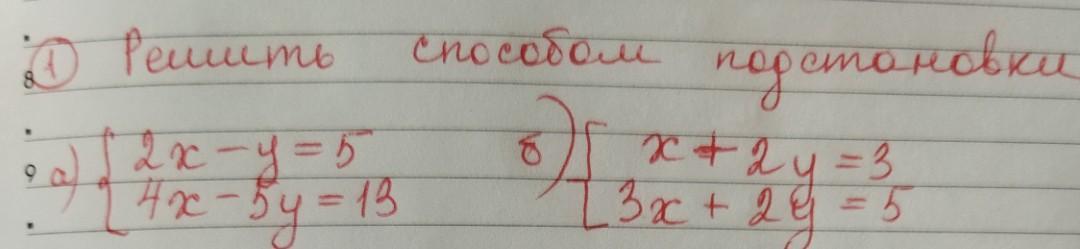 ① Решить способом подстановки
8
9 а) { 2x - y = 5 б) { x + 2y = 3
4x - 5y = 13 3x + 2y = 5